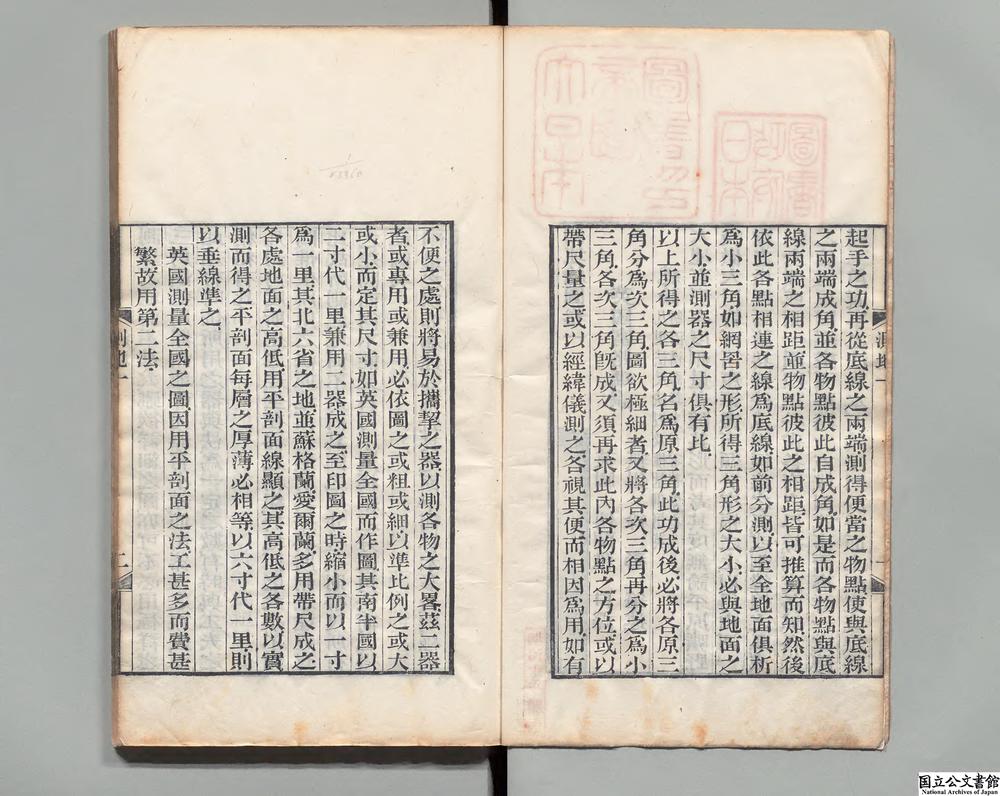 起手之功再從底線之兩端測得便當之物點使與底線
之兩端成角並各物點彼此自成角如是而各物點與底
線兩端之相距並物點彼此之相距皆可推算而知然後
依此各點相連之線爲底線如前分測以至全地面俱析
爲小三角如網罟之形所得三角形之大小必與地面之
大小並測器之尺寸俱有比
以上所得之各三角名爲原三角此功成後必將各原三
角分爲次三角圖欲極細者又將各次三角再分之爲小
三角各次三角旣成又須再求此內各物點之方位或以
帶尺量之或以經緯儀測之各視其便而相因爲用如有
不便之處則將易於攜挈之器以測各物之大畧茲二器
者或專用或兼用必依圖之或粗或細以準比例之或大
或小而定其尺寸如英國測量全國而作圖其南半國以
二寸代一里兼用二器成之至印圖之時縮小而以一寸
爲一里其北六省之地並蘇格蘭愛爾蘭多用帶尺成之
各處地面之高低用平剖面線顯之其高低之各數以實
測而得之平剖面每層之厚薄必相等以六寸代一里則
以垂線準之
英國測量全國之圖因用平剖面之法工甚多而費甚
繁故用第二法
測地一
二
圖書
日本
国立公文書館
National Archives of Japan